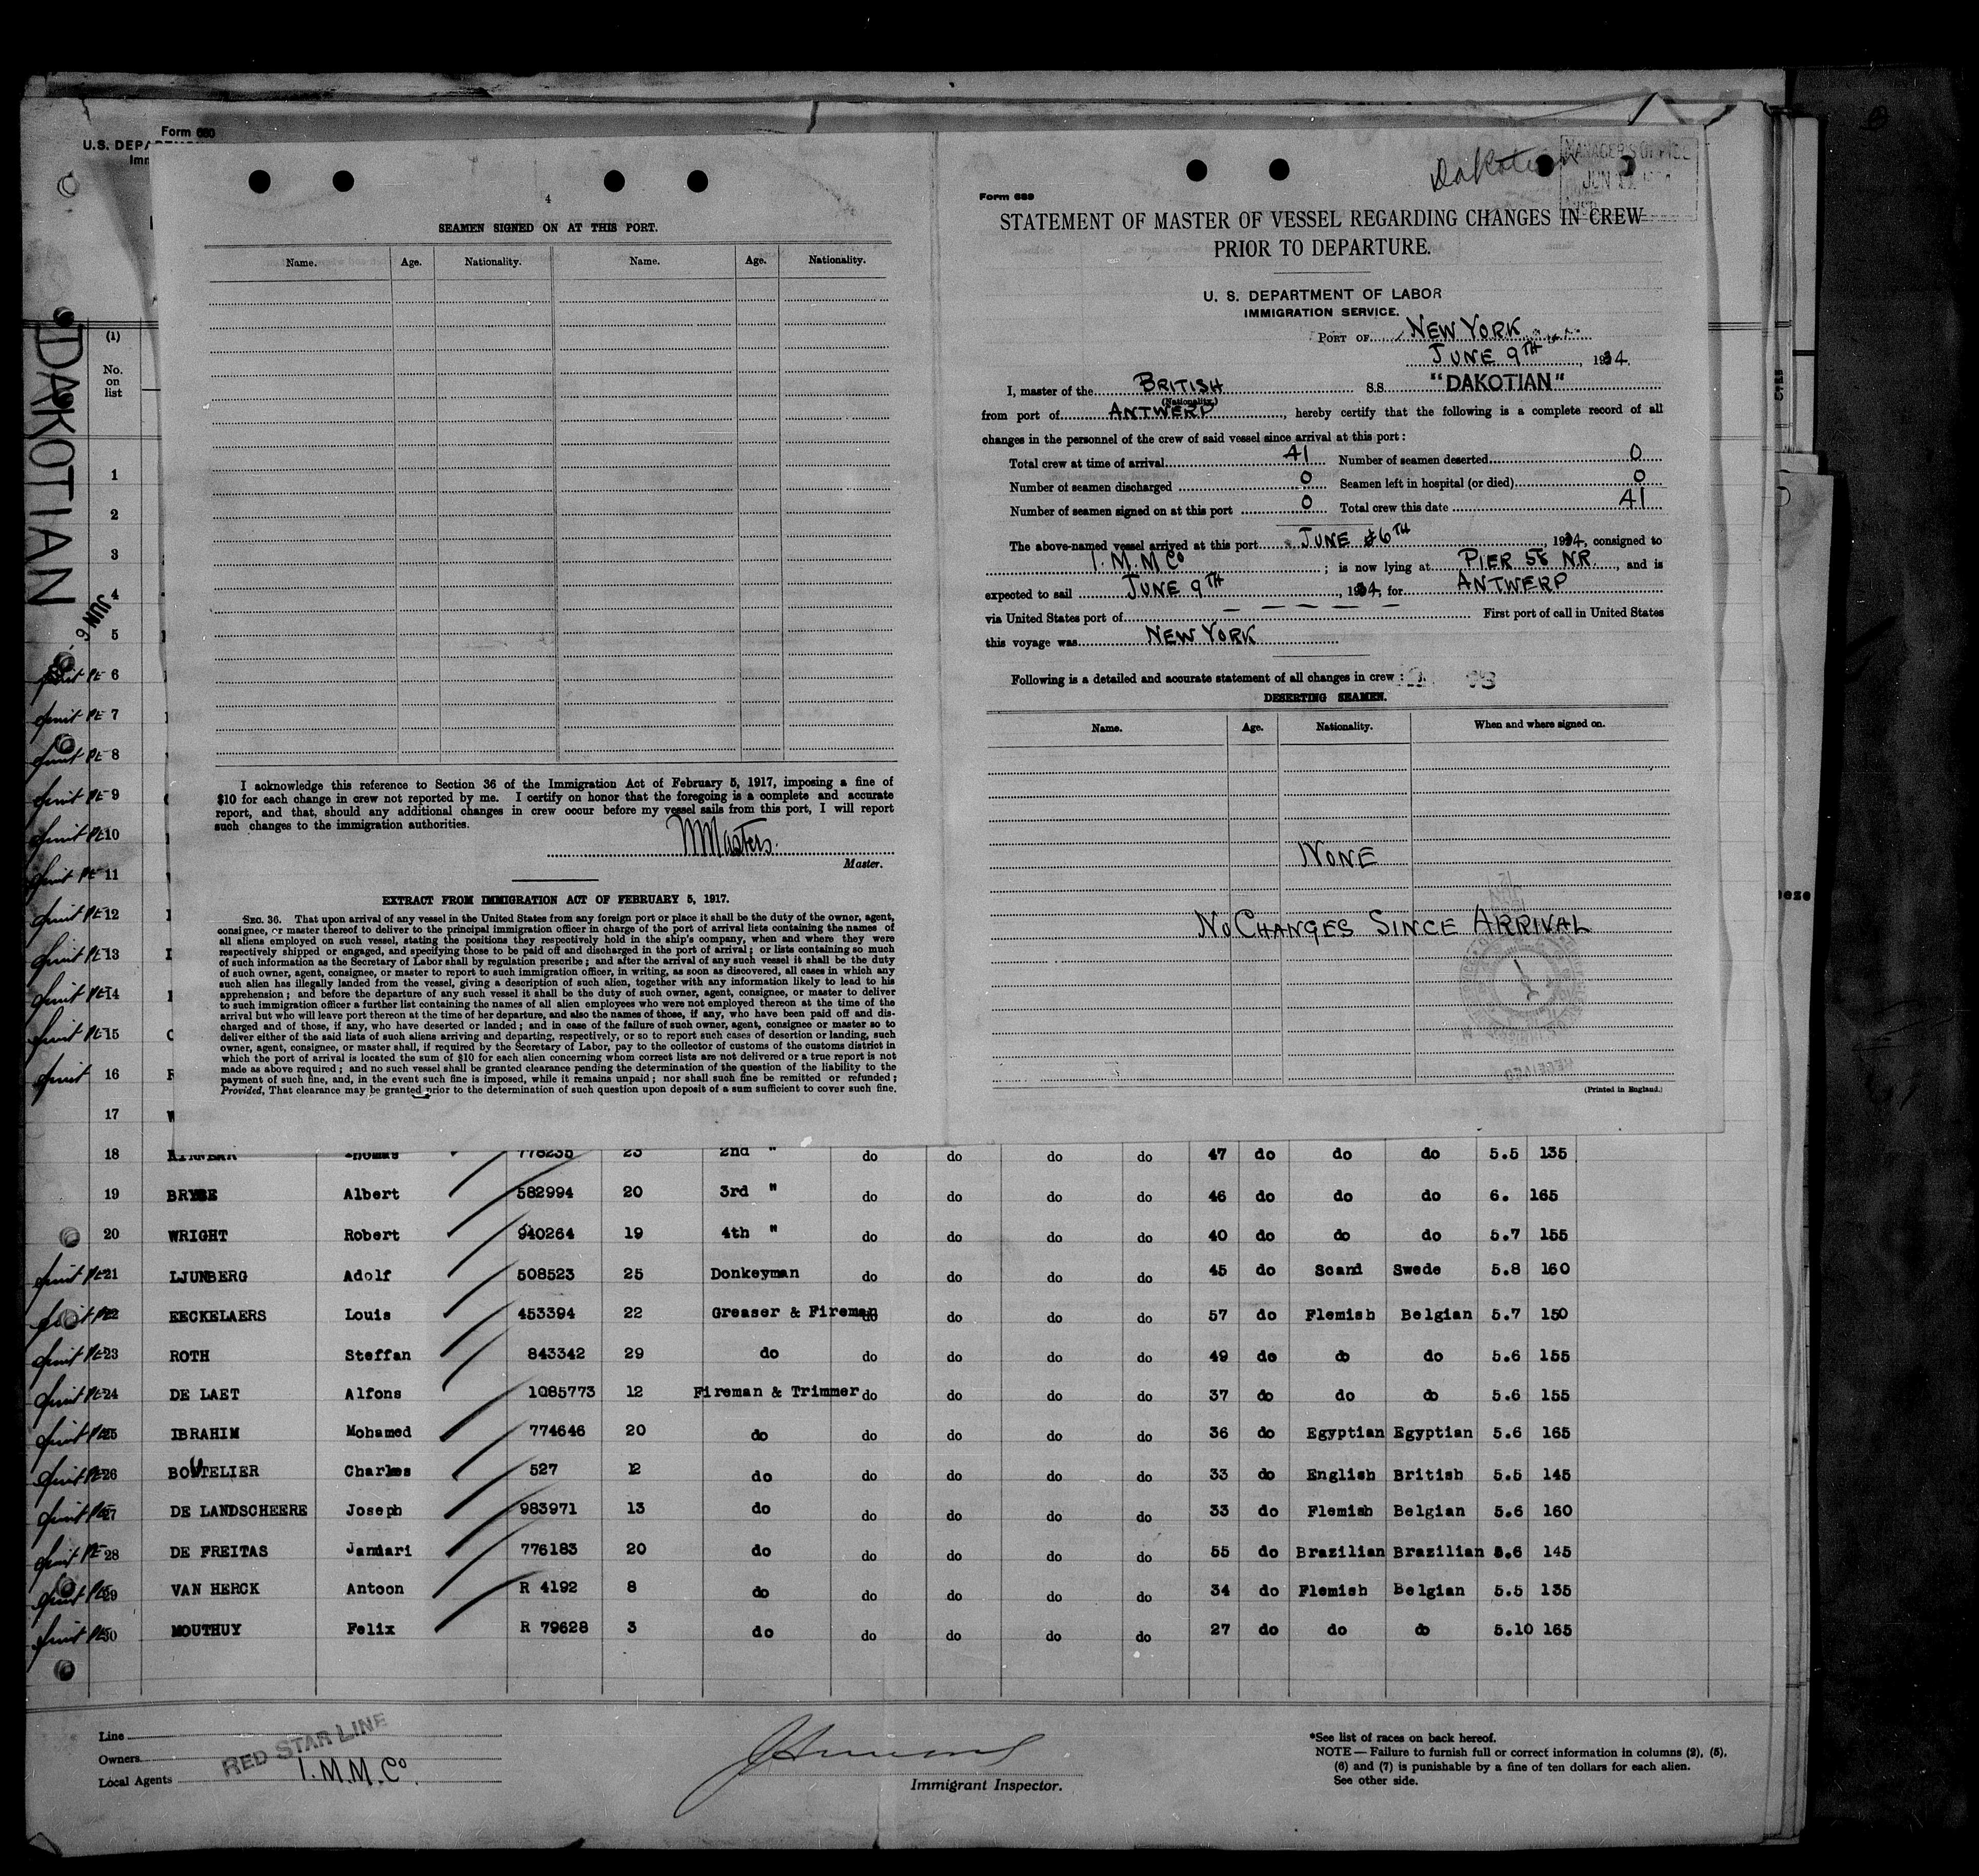 Form 680
U.S. DEPA
Imm
DAKOTIAN
JUN 6
(1)
No.
on
list
1
2
3
4
5
6
7
8
9
10
11
12
13
14
15
16
17
4
SEAMEN SIGNED ON AT THIS PORT.
Name. Age. Nationality. Name. Age. Nationality.
I acknowledge this reference to Section 36 of the Immigration Act of February 5, 1917, imposing a fine of
$10 for each change in crew not reported by me. I certify on honor that the foregoing is a complete and accurate
report, and that, should any additional changes in crew occur before my vessel sails from this port, I will report
such changes to the immigration authorities.
Masters.
Master.
EXTRACT FROM IMMIGRATION ACT OF FEBRUARY 5, 1917.
SEC. 36. That upon arrival of any vessel in the United States from any foreign port or place it shall be the duty of the owner, agent,
consignee, or master thereof to deliver to the principal immigration officer in charge of the port of arrival lists containing the names of
all aliens employed on such vessel, stating the positions they respectively hold in the ship's company, when and where they were
respectively shipped or engaged, and specifying those to be paid off and discharged in the port of arrival; or lists containing so much
of such information as the Secretary of Labor shall by regulation prescribe; and after the arrival of any such vessel it shall be the duty
of such owner, agent, consignee, or master to report to such immigration officer, in writing, as soon as discovered, all cases in which any
such alien has illegally landed from the vessel, giving a description of such alien, together with any information likely to lead to his
apprehension; and before the departure of any such vessel it shall be the duty of such owner, agent, consignee, or master to deliver
to such immigration officer a further list containing the names of all alien employees who were not employed thereon at the time of the
arrival but who will leave port thereon at the time of her departure, and also the names of those, if any, who have been paid off and dis-
charged and of those, if any, who have deserted or landed; and in case of the failure of such owner, agent, consignee or master so to
deliver either of the said lists of such aliens arriving and departing, respectively, or so to report such cases of desertion or landing, such
owner, agent, consignee, or master shall, if required by the Secretary of Labor, pay to the collector of customs of the customs district in
which the port of arrival is located the sum of $10 for each alien concerning whom correct lists are not delivered or a true report is not
made as above required; and no such vessel shall be granted clearance pending the determination of the question of the liability to the
payment of such fine, and, in the event such fine is imposed, while it remains unpaid; nor shall such fine be remitted or refunded;
Provided, That clearance may be granted prior to the determination of such question upon deposit of a sum sufficient to cover such fine.
Dakotian
MANAGER'S OFFICE
JUN
Form 689
STATEMENT OF MASTER OF VESSEL REGARDING CHANGES IN CREW
PRIOR TO DEPARTURE.
U. S. DEPARTMENT OF LABOR
IMMIGRATION SERVICE.
PORT OF NEW YORK
JUNE 9TH, 1934.
I, master of the BRITISH S.S. "DAKOTIAN"
(Nationality.)
from port of ANTWERP, hereby certify that the following is a complete record of all
changes in the personnel of the crew of said vessel since arrival at this port:
Total crew at time of arrival 41 Number of seamen deserted 0
Number of seamen discharged 0 Seamen left in hospital (or died) 0
Number of seamen signed on at this port 0 Total crew this date 41
The above-named vessel arrived at this port JUNE 6TH, 1934, consigned to
I.M.M Co; is now lying at PIER 58 N.R., and is
expected to sail JUNE 9TH, 1934, for ANTWERP
via United States port of – – – – – First port of call in United States
this voyage was NEW YORK
Following is a detailed and accurate statement of all changes in crew:
DESERTING SEAMEN.
Name. Age. Nationality. When and where signed on.
NONE
NO CHANGES SINCE ARRIVAL
RECEIVED
(Printed in England.)
18 KINNEAR Thomas 778235 23 2nd " do do do do 47 do do do 5.5 135
19 BRYSE Albert 582994 20 3rd " do do do do 46 do do do 6. 165
20 WRIGHT Robert 940264 19 4th " do do do do 40 do do do 5.7 155
21 LJUNBERG Adolf 508523 25 Donkeyman do do do do 45 do Scand Swede 5.8 160
22 EECKELAERS Louis 453394 22 Greaser & Fireman do do do do 57 do Flemish Belgian 5.7 150
23 ROTH Steffan 843342 29 do do do do do 49 do do do 5.6 155
24 DE LAET Alfons 1085773 12 Fireman & Trimmer do do do do 37 do do do 5.6 155
25 IBRAHIM Mohamed 774646 20 do do do do do 36 do Egyptian Egyptian 5.6 165
26 BOUTELIER Charles 527 12 do do do do do 33 do English British 5.5 145
27 DE LANDSCHEERE Joseph 983971 13 do do do do do 33 do Flemish Belgian 5.6 160
28 DE FREITAS Januari 776183 20 do do do do do 55 do Brazilian Brazilian 5.6 145
29 VAN HERCK Antoon R 4192 8 do do do do do 34 do Flemish Belgian 5.5 135
30 MOUTHUY Felix R 79628 3 do do do do do 27 do do do 5.10 165
Line
Owners RED STAR LINE
Local Agents I.M.M.Co.
Immigrant Inspector.
*See list of races on back hereof.
NOTE — Failure to furnish full or correct information in columns (2), (5),
(6) and (7) is punishable by a fine of ten dollars for each alien.
See other side.